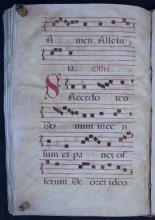 A men. Allelu
ia. Offer.
SAcerdo tes
Domini incen
sum et pa nes of
ferunt De o: et ideo